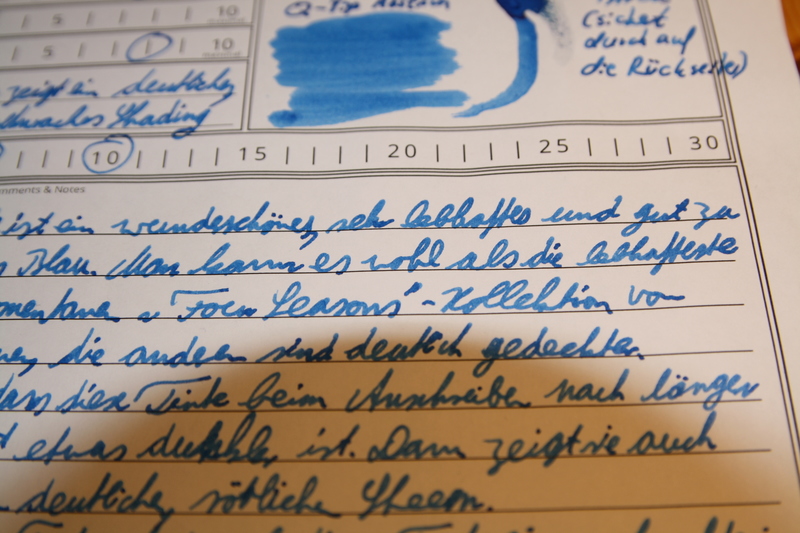 10
5 10
Q-Tip
(sichet
durch auf
die Rückseite)
zeigt ein deutliches
Shading
10 15 20 25 30
mments & Notes
ist ein wunderschönes, sehr lebhaftes und gut zu
Blau. Man kann es wohl als die lebhafteste
momentanen "Four Seasons"-Kollektion von
die anderen sind deutlich gedeckter.
dass diese Tinte beim Anschreiben nach länger
etwas dunkler ist. Dann zeigt sie auch
deutlichen rötlichen Sheen.